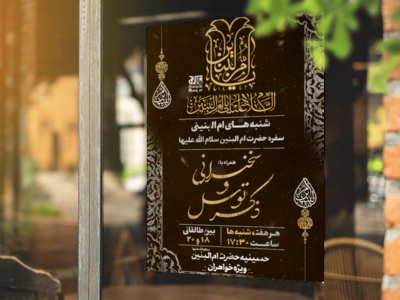 ام البنین
السلام علیک یا ام البنین
شنبه‌های ام البنینی
سفره حضرت ام البنین سلام الله علیها
همراه با:
سخنرانی
و
ذکر توسل
هر هفته، شنبه‌ها
ساعت ۱۷:۳۰
بین طالقانی
۱۸ و ۲۰
حسینیه حضرت ام البنین
ویژه خواهران